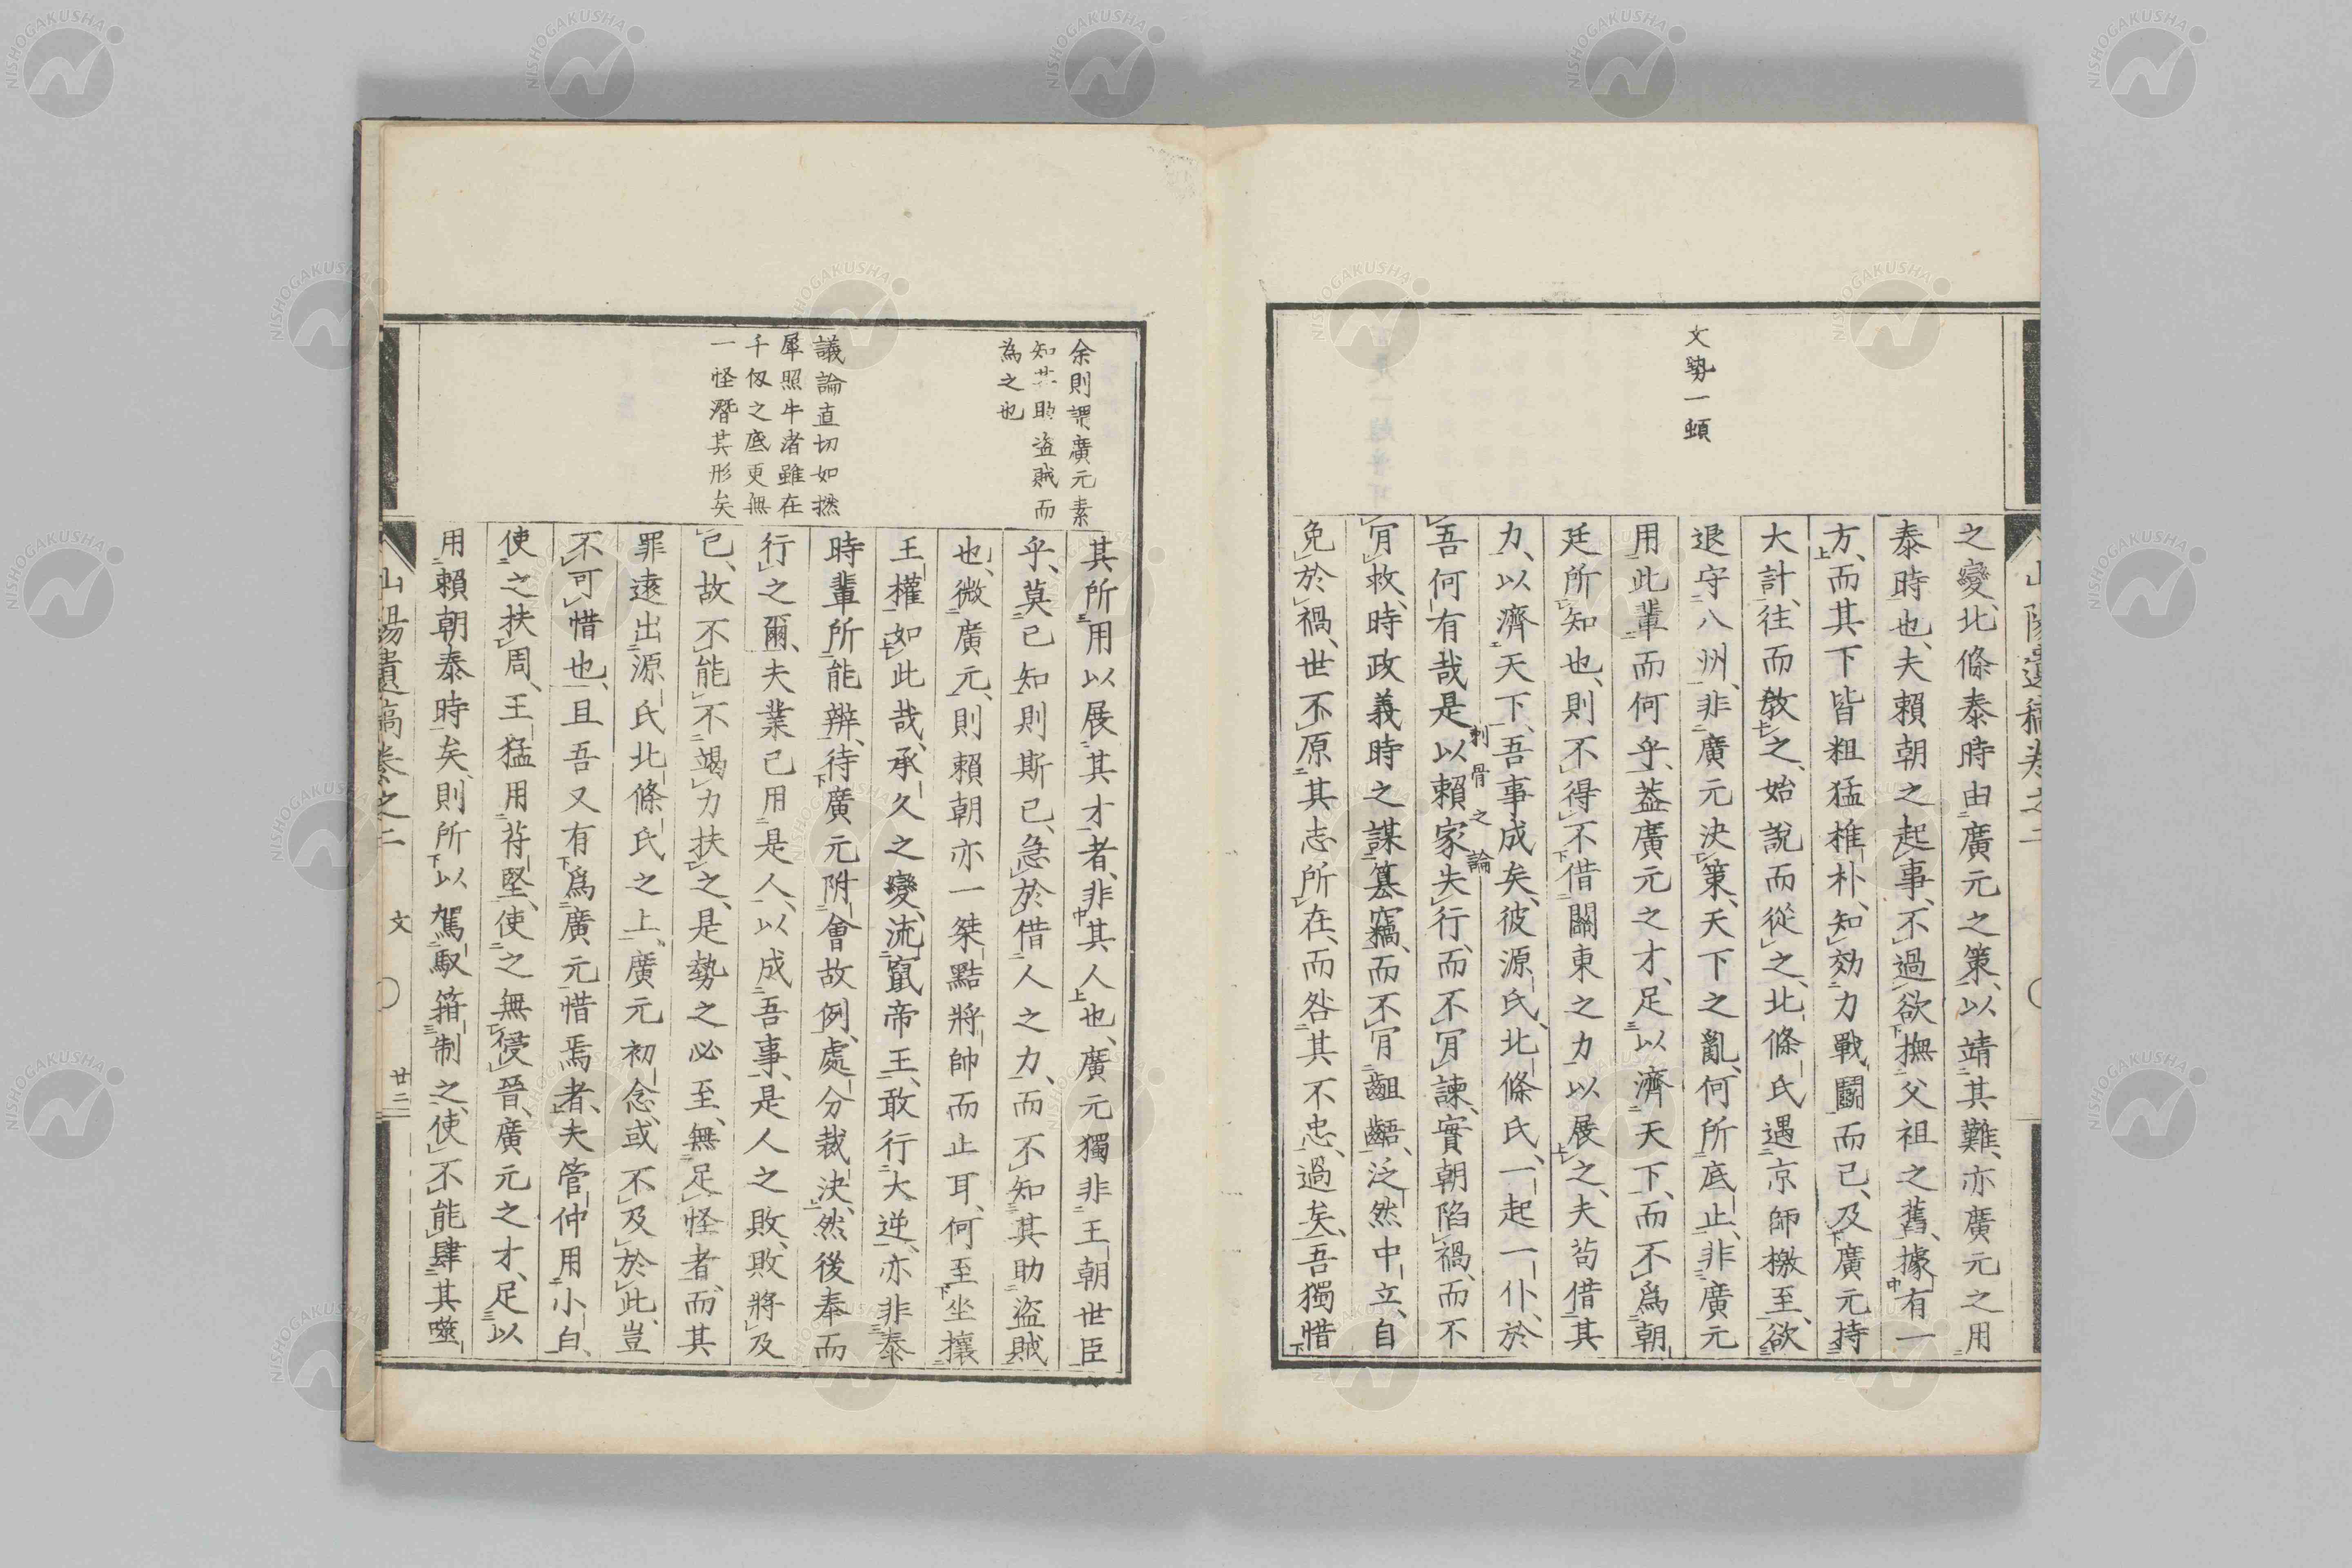 文勢一頓
之變、北條泰時由廣元之策、以靖其難、亦廣元之用
泰時也、夫賴朝之起事、不過欲撫父祖之舊、據有一
方、而其下皆粗猛椎朴、知効力戰鬪而已、及廣元持
大計、往而教之、始說而從之、北條氏遇京師檄至、欲
退守八州、非廣元決策、天下之亂、何所底止、非廣元
用此輩而何乎、蓋廣元之才、足以濟天下、而不爲朝
廷所知也、則不得不借關東之力以展之、夫苟借其
力、以濟天下、吾事成矣、彼源氏、北條氏、一起一仆、於
刺骨之論
吾何有哉、是以賴家失行、而不肎諫、實朝陷禍、而不
肎救、時政義時之謀簒竊、而不肎齟齬、泛然中立、自
免於禍、世不原其志所在、而咎其不忠、過矣、吾獨惜
山陽遺稿卷之二
余則謂廣元素
知其助盜賊而
為之也
議論直切如撚
犀照牛渚雖在
千仭之底更無
一怪潛其形矣
其所用以展其才者、非其人也、廣元獨非王朝世臣
乎、莫已知則斯已、急於借人之力、而不知其助盜賊
也、微廣元、則賴朝亦一桀黠將帥而止耳、何至坐攘
王權如此哉、承久之變、流竄帝王、敢行大逆、亦非泰
時輩所能辨、待廣元附會故例、處分裁決、然後奉而
行之爾、夫業已用是人、以成吾事、是人之敗、敗將及
已、故不能不竭力扶之、是勢之必至、無足怪者、而其
罪遠出源氏北條氏之上、廣元初念、或不及於此、豈
不可惜也、且吾又有爲廣元惜焉者、夫管仲用小白、
使之扶周、王猛用苻堅、使之無侵晉、廣元之才、足以
用賴朝泰時矣、則所以駕馭箝制之、使不能肆其噬
山陽遺稿卷之二
文
廿三